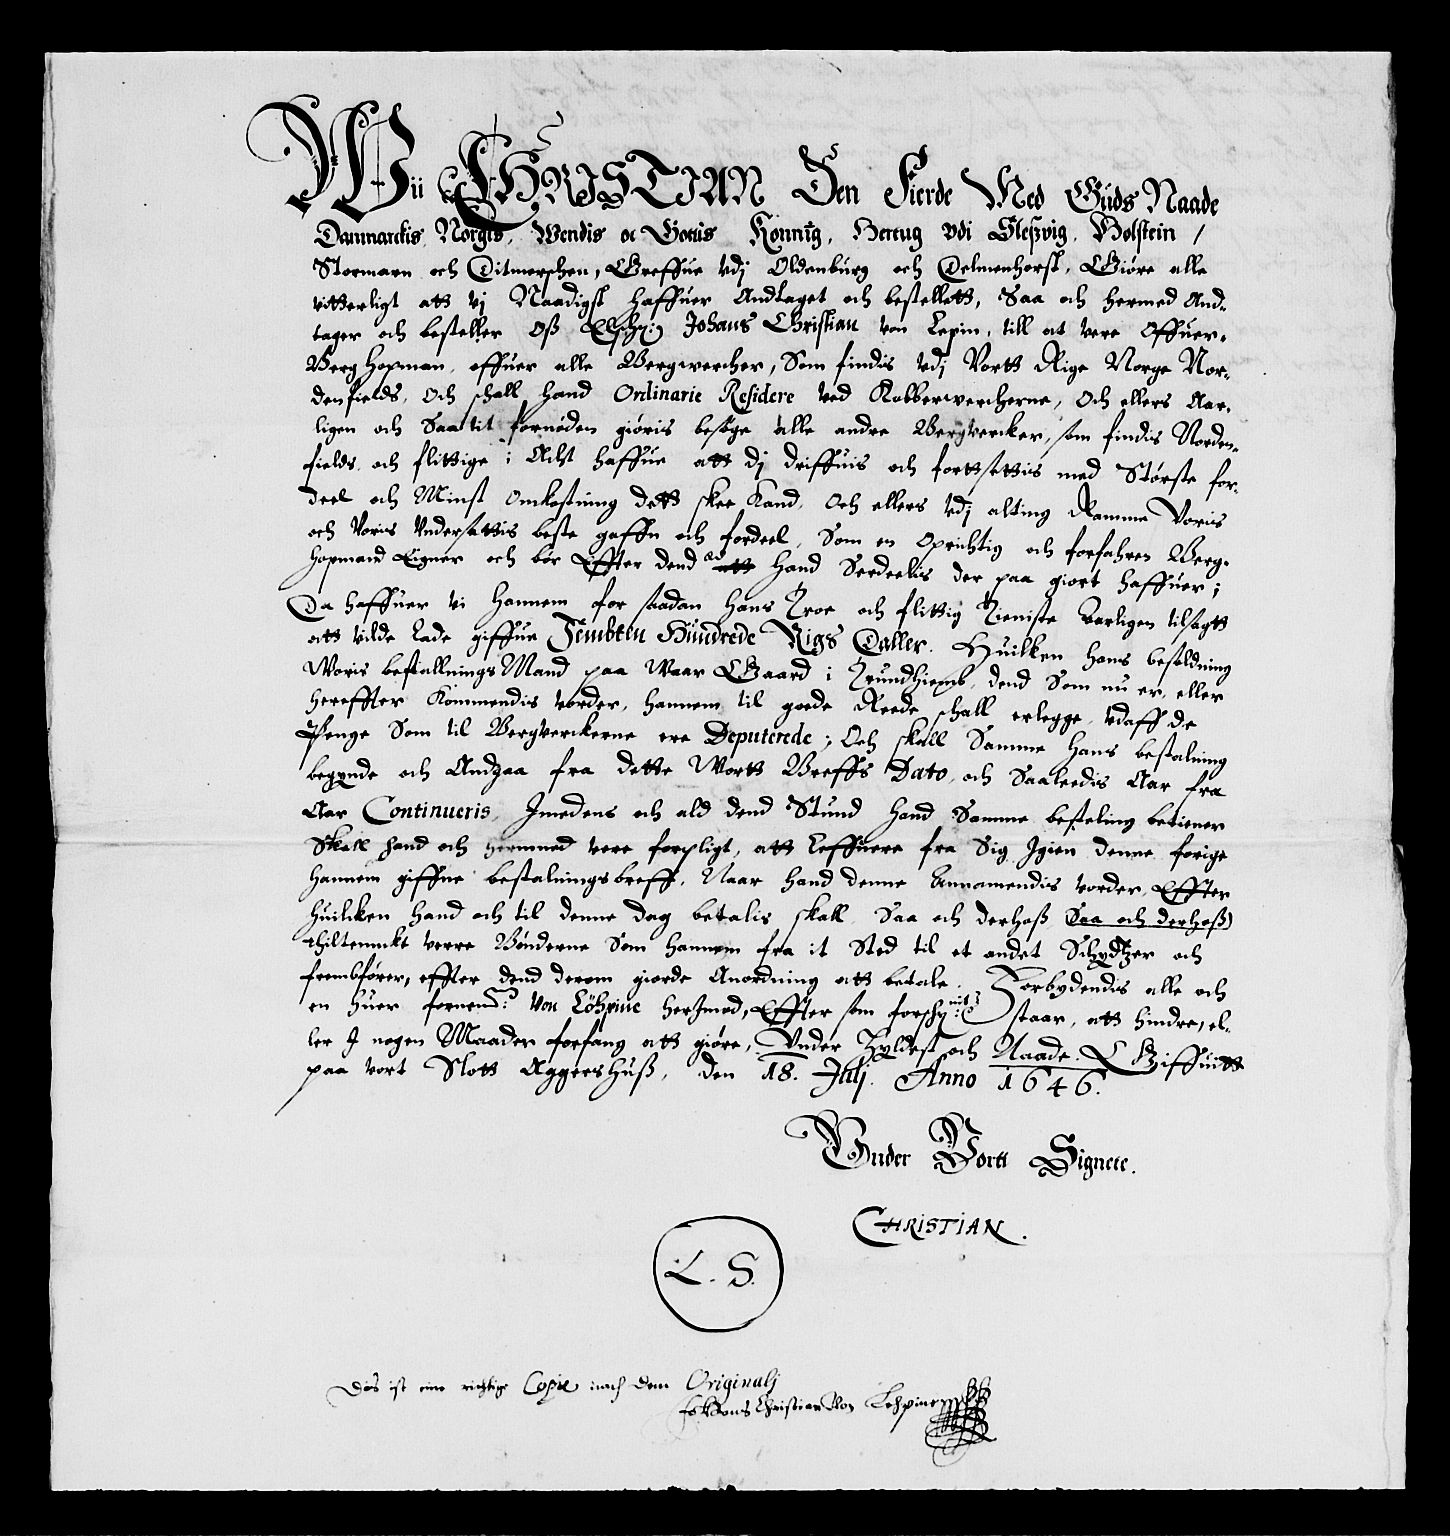 Wii CHRISTIAN Den Fierde Med Guds Naade
Dannmarckis, Norgis, Wendis oc Gottis Konnig, Hertug vdi Sleßvig, Holstein /
Stormarn och Ditmerschen, Greffue vdj Oldenburg och Delmenhorst, Giøre alle
vitterligt att vj Naadigst haffuer Andtaget och bestellett, Saa och hermed And-
tager och besteller Oß Elschel: Johans Christian von Lepin, till at vere Offuer-
Berg Hopman, offuer alle Bergwercher, Som findis vdj Vortt Rige Norge Nor-
denfields, Och schall hand Ordinarie Residere ved Kobberwercherne, Och ellers Aar-
ligen och Saa tit fornøden giøris besøge alle andre Bergvercker, som findis Norden-
fields, och flittige i Acht haffue att dj driffuis och forttsettis med Største for-
deel och Minst Omkostning dett skee Kand, Och ellers vdj alting Ramme Voris
och Voris Vndersattis beste gaffn och fordeel, Som en Oprichtig och forfahren Berg-
hopmand Eigner och bør Effter dend ed att Hand Serdeelis der paa giort haffuer;
Da haffuer vi Hannem for saadan Hans Troe och flittig Tieniste Aarligen tilsagtt
att vilde Lade giffue Fembten Hundrede Rigs Daller. Huilken hans besoldning
Woris bestallnings Mand paa Waar Gaard i Trundhiemb, dend Som nu er, eller
hereffter Kommendis vorder, hannem til goede Reede schall erlegge, vdaff de
Penge Som til Bergverckerne ere Deputerede; Och skall Samme hans bestalning
begynde och Andgaa fra dette Wortt Breffs Dato, och Saaleedis Aar fra
Aar Continueris, Imedens och ald dend Stund Hand Samme besteling betiener
Skall hand och hermmed vere forpligt, att Leffuere fra Sig Igien denne forige
Hannem giffne bestalningsbreff, Naar hand denne Annamendis vorder, Effter
huilcken hand och til denne dag betalis skall, Saa och derhoß (Saa och derhoß)
thiltencke verre Bønderne Som hannem fra it Sted til et andet Schydtzer och
frembfører, effter dend derom giorde Anordning att betale. Forbydendis alle och
en huer fornemd: Von Löhpine herImod, Effter som forschrt: staar, att hindre, el-
ler I nogen Maader forfang att giøre, Vnder Hyldest och Naade. Giffuitt
paa vort Slott Aggershuß, den 18. Julj. Anno 1646.
Vnder Vortt Signete.
CHRISTIAN.
L. S.
Das ist eine richtige Copie nach dem Originalj
Johans Christian Von Lehpine